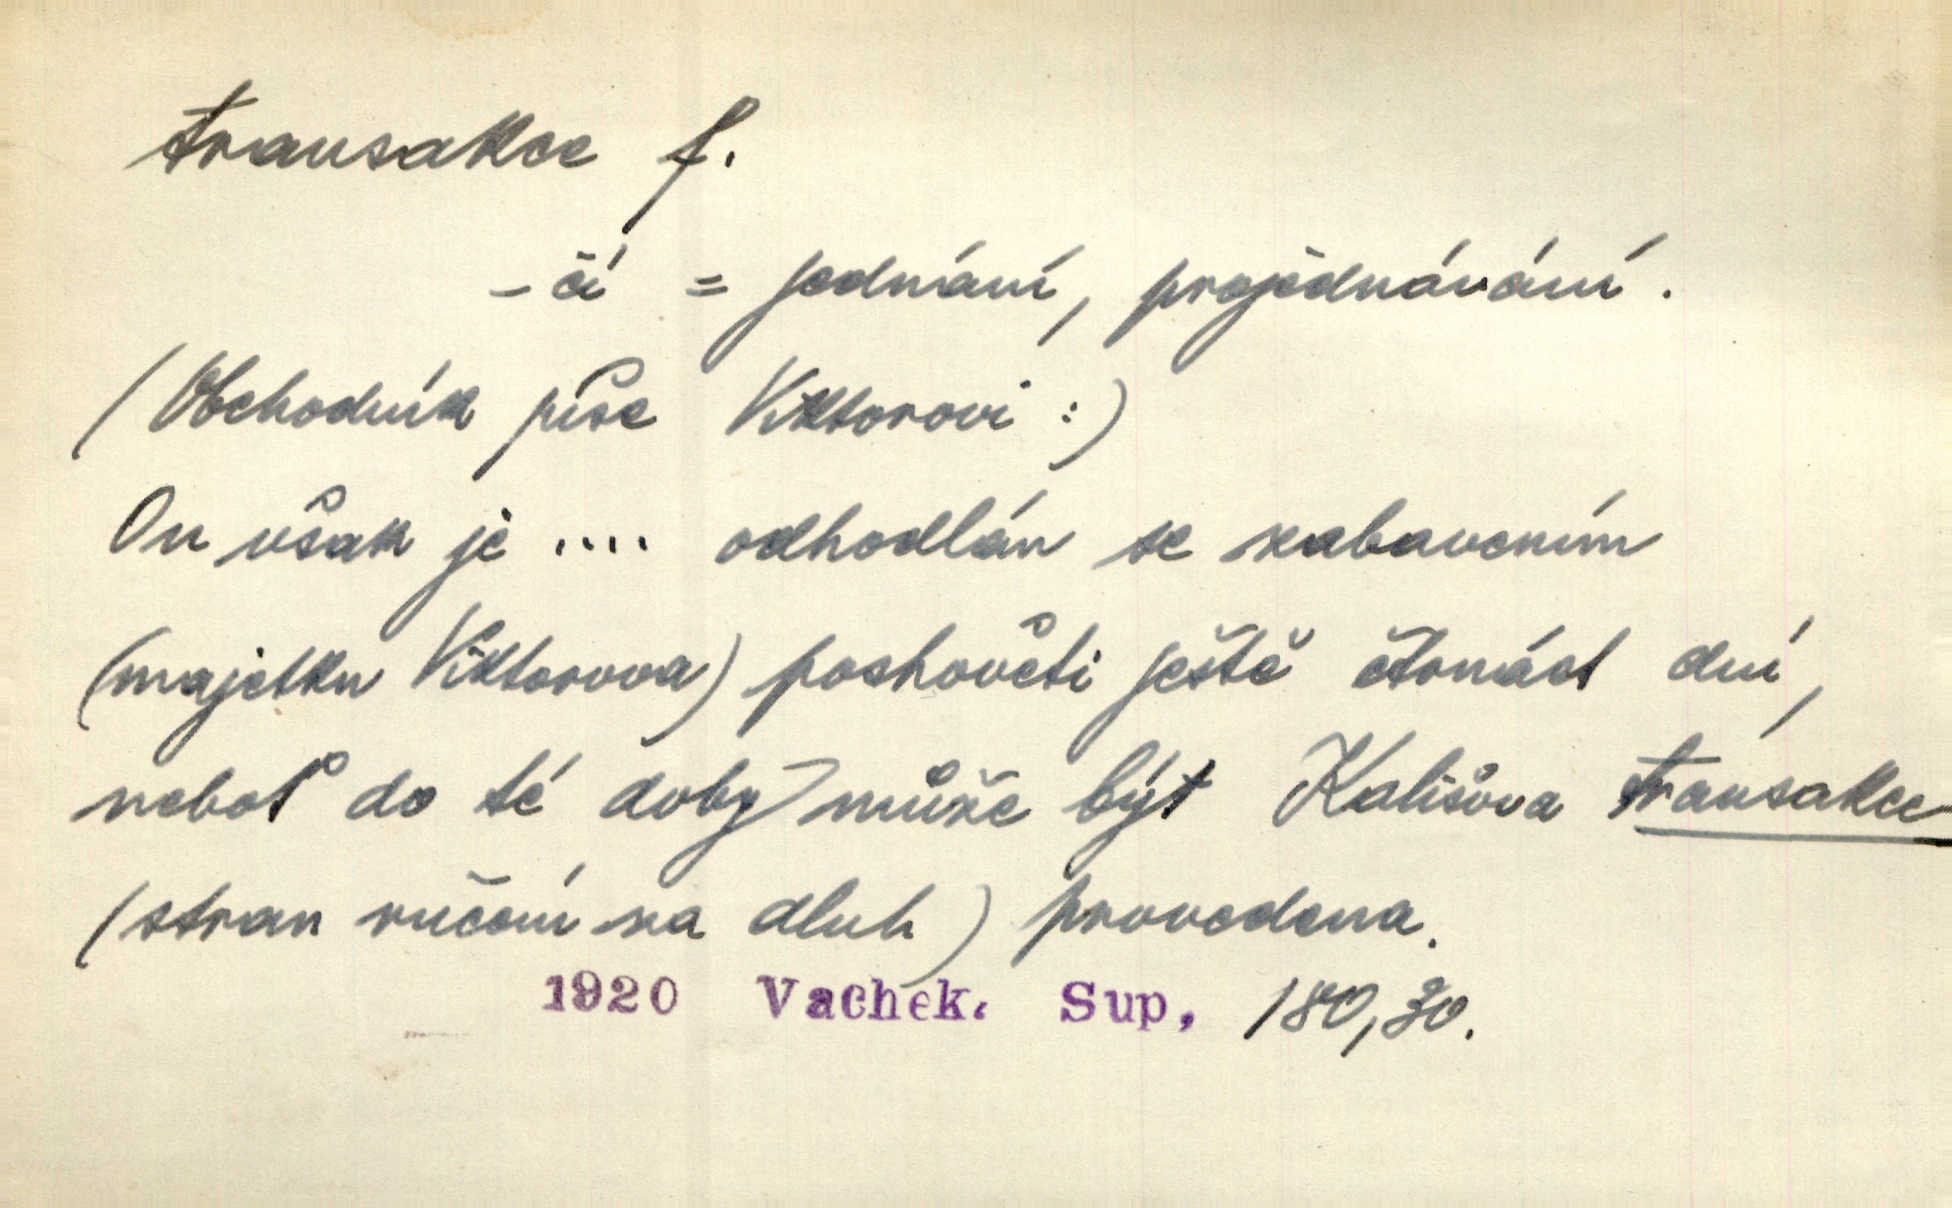 transakce f.
– čí = jednání, projednávání.
(Obchodník píše Viktorovi :)
On však je .... odhodlán se zabavením
(majetku Viktorova) poshověti ještě čtrnáct dní,
neboť do té doby může být Kališova transakce
(stran ručení za dluh) provedena.
1920 Vachek. Sup, 180,30.